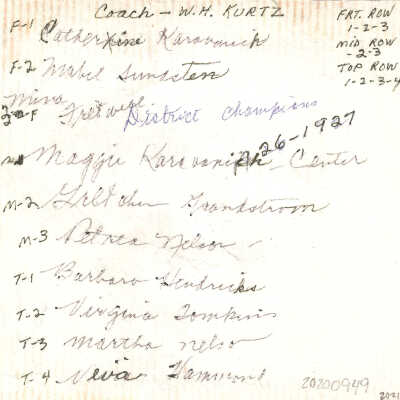 Coach - W.H. KURTZ
FRT. ROW
1-2-3
MID ROW
-2-3
TOP ROW
1-2-3-4
F-1 Catherine Karavanich
F-2 Mabel Sundsten
Mina
F
District Champions
26-1927
Maggie Karavanich - Center
M-2 Gretchen Grandstrom
M-3 Petrea Nelson
T-1 Barbara Hendricks
T-2 Virginia Tomkins
T-3 Martha Nelson
T-4 Neva Hammond
20200949
2021